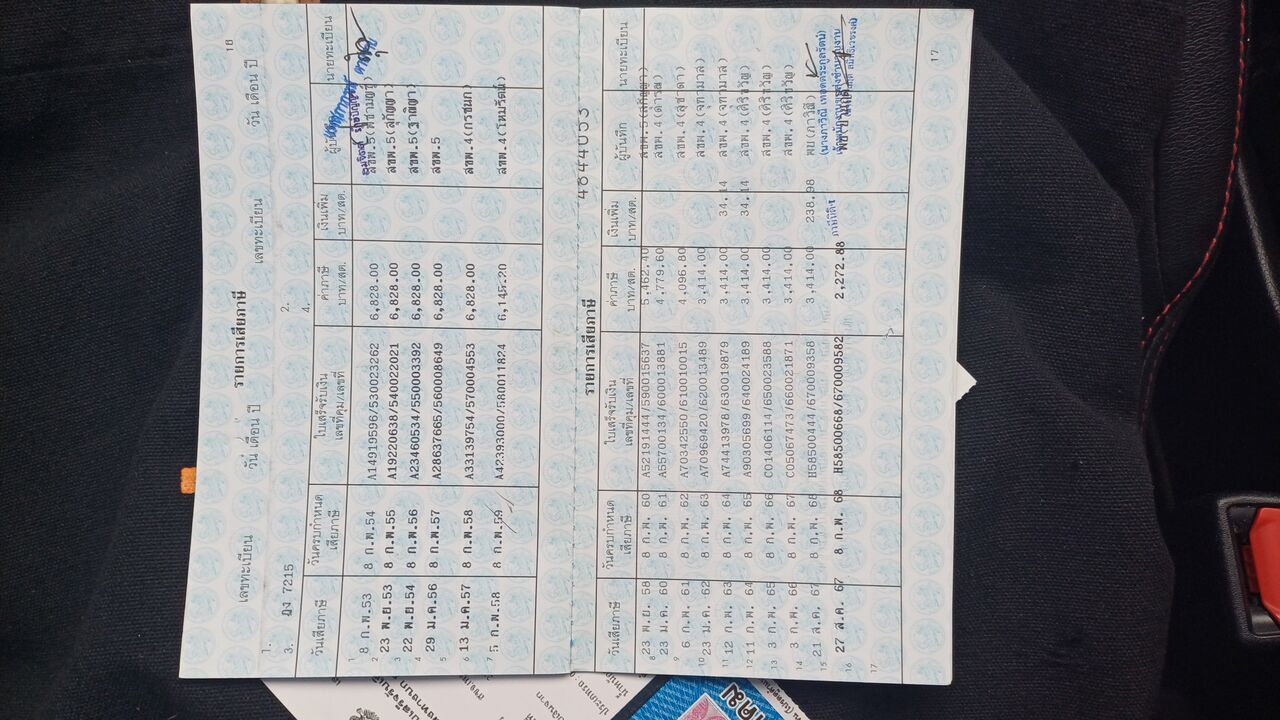 18
รายการเสียภาษี
เลขทะเบียน วัน เดือน ปี เลขทะเบียน วัน เดือน ปี
1. 2.
3. ฎง 7215 4.
วันเสียภาษี วันครบกำหนดเสียภาษี ใบเสร็จรับเงินเล่มที่คุม/เลขที่ ค่าภาษี บาท/สต. เงินเพิ่ม บาท/สต. ผู้บันทึก นายทะเบียน
1 8 ก.พ.53 8 ก.พ.54 A14919596/530023262 6,828.00
2 23 พ.ย.53 8 ก.พ.55 A19220638/540022021 6,828.00 สขพ.5(สุกัญญา)
3 22 พ.ย.54 8 ก.พ.56 A23460534/550003392 6,828.00 สขพ.5
4 29 ม.ค.56 8 ก.พ.57 A28637665/560008649 6,828.00 สขพ.5
5
6 13 ม.ค.57 8 ก.พ.58 A33139754/570004553 6,828.00 สขพ.4(กรชนก)
7 5 ก.พ.58 8 ก.พ.59 A42393000/580011824 6,145.20 สขพ.4
4844053
รายการเสียภาษี
วันเสียภาษี วันครบกำหนดเสียภาษี ใบเสร็จรับเงินเล่มที่คุม/เลขที่ ค่าภาษี บาท/สต. เงินเพิ่ม บาท/สต. ผู้บันทึก นายทะเบียน
23 พ.ย. 58 8 ก.พ. 60 A52191444/590015637 5,462.40
8 23 ม.ค. 60 8 ก.พ. 61 A55700134/600013881 4,779.60 สขพ.4(ดารณี)
9 6 ก.พ. 61 8 ก.พ. 62 A70342550/610010015 4,096.80 สขพ.4(สุชาดา)
10 23 ม.ค. 62 8 ก.พ. 63 A70969420/620013489 3,414.00 สขพ.4(จุฑามาส)
11 12 ก.พ. 63 8 ก.พ. 64 A74413978/630019879 3,414.00 34.14 สขพ.4(จุฑามาส)
12 11 ก.พ. 64 8 ก.พ. 65 A90305699/640024189 3,414.00 34.14 สขพ.4(ศิริขวัญ)
13 3 ก.พ. 65 8 ก.พ. 66 C01406114/650023588 3,414.00 สขพ.4(ศิริขวัญ)
14 3 ก.พ. 66 8 ก.พ. 67 C05067473/660021871 3,414.00 สขพ.4(ศิริขวัญ)
15 21 ส.ค. 67 8 ก.พ. 68 H58500444/670009358 3,414.00 238.98 พบ(ภาวิณี)
(นางภาวิณี เทอดตระกูลรัตน์)
เจ้าพนักงานขนส่งชำนาญงาน
16 27 ส.ค. 67 8 ก.พ. 68 H58500668/670009582 2,272.88
17
17